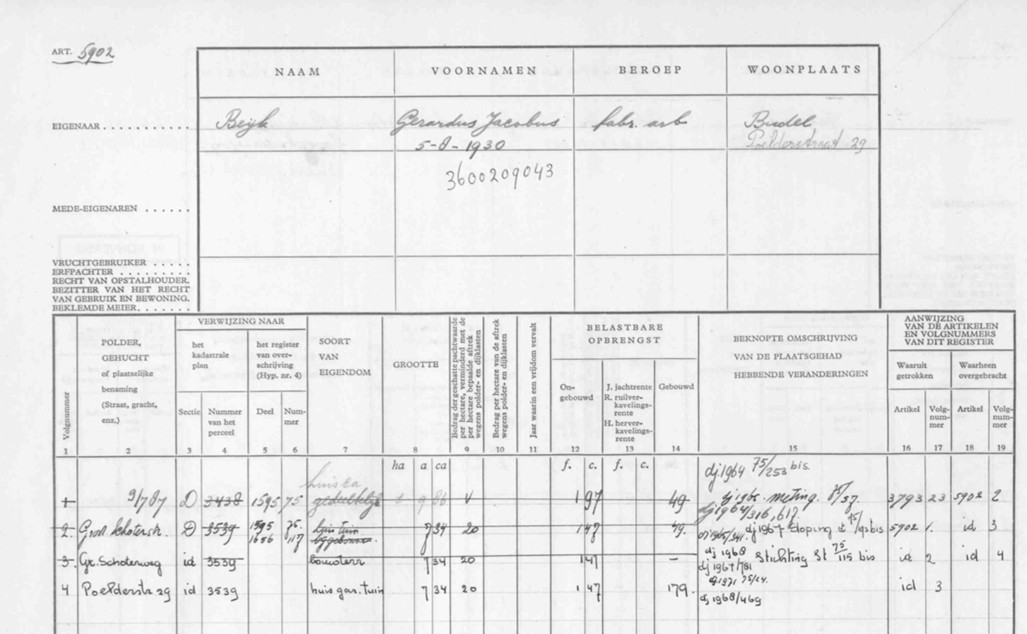 ART. 5902
NAAM VOORNAMEN BEROEP WOONPLAATS
EIGENAAR Beijk Gerardus Jacobus fabr. arb. Budel
5-8-1930 Poelderstraat 29
3600209043
MEDE-EIGENAREN
VRUCHTGEBRUIKER
ERFPACHTER
RECHT VAN OPSTALHOUDER.
BEZITTER VAN HET RECHT
VAN GEBRUIK EN BEWONING.
BEKLEMDE MEIER
Volgnummer
POLDER,
GEHUCHT
of plaatselijke
benaming
(Straat, gracht,
enz.)
VERWIJZING NAAR
het
kadastrale
plan
Sectie
Nummer
van het
perceel
het register
van over-
schrijving
(Hyp. nr. 4)
Deel
Num-
mer
SOORT
VAN
EIGENDOM
GROOTTE
Bedrag der geschatte pachtwaarde
per hectare, verminderd met de
per hectare bepaalde aftrek
wegens polder- en dijklasten
Bedrag per hectare van de aftrek
wegens polder- en dijklasten
Jaar waarin een vrijdom vervalt
BELASTBARE
OPBRENGST
On-
gebouwd
J. jachtrente
R. ruilver-
kavelings-
rente
H. herver-
kavelings-
rente
Gebouwd
BEKNOPTE OMSCHRIJVING
VAN DE PLAATSGEHAD
HEBBENDE VERANDERINGEN
AANWIJZING
VAN DE ARTIKELEN
EN VOLGNUMMERS
VAN DIT REGISTER
Waaruit
getrokken
Waarheen
overgebracht
Artikel
Volg-
num-
mer
Artikel
Volg-
num-
mer
1 2 3 4 5 6 7 8 9 10 11 12 13 14 15 16 17 18 19
ha a ca f. c. f. c. dj 1964 75/253 bis
1 D 3438 1595 75 9 86 V 1 97 49 meting 3793 23 5902 2
dj 1964/316, 617
2 D 3539 1595 75 huis tuin 7 34 20 1 47 49 dj 1967 sloping 5902 1 id 3
1686 117
3 Gr. Schoterweg id 3539 bouwterr 7 34 20 1 47 - dj 1968 Stichting St 75/115 bis id 2 id 4
dj 1967/781
4 Poelderstr 29 id 3539 huis gar. tuin 7 34 20 1 47 179 id 3
dj 1968/469